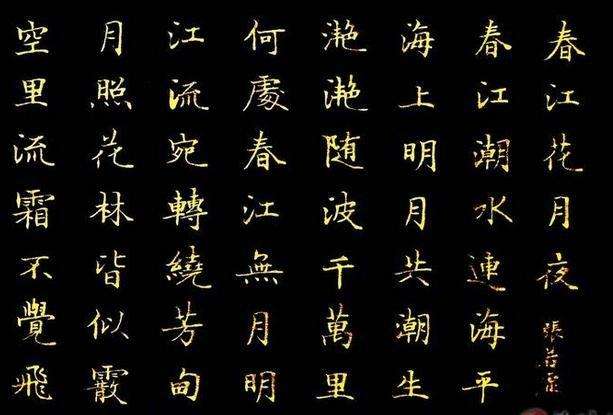 春江花月夜 張若虛
春江潮水連海平
海上明月共潮生
滟滟随波千萬里
何處春江無月明
江流宛轉繞芳甸
月照花林皆似霰
空里流霜不覺飛